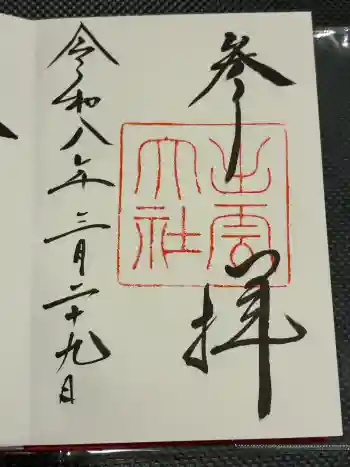 参拝
出雲
大社
令和八年三月二十九日